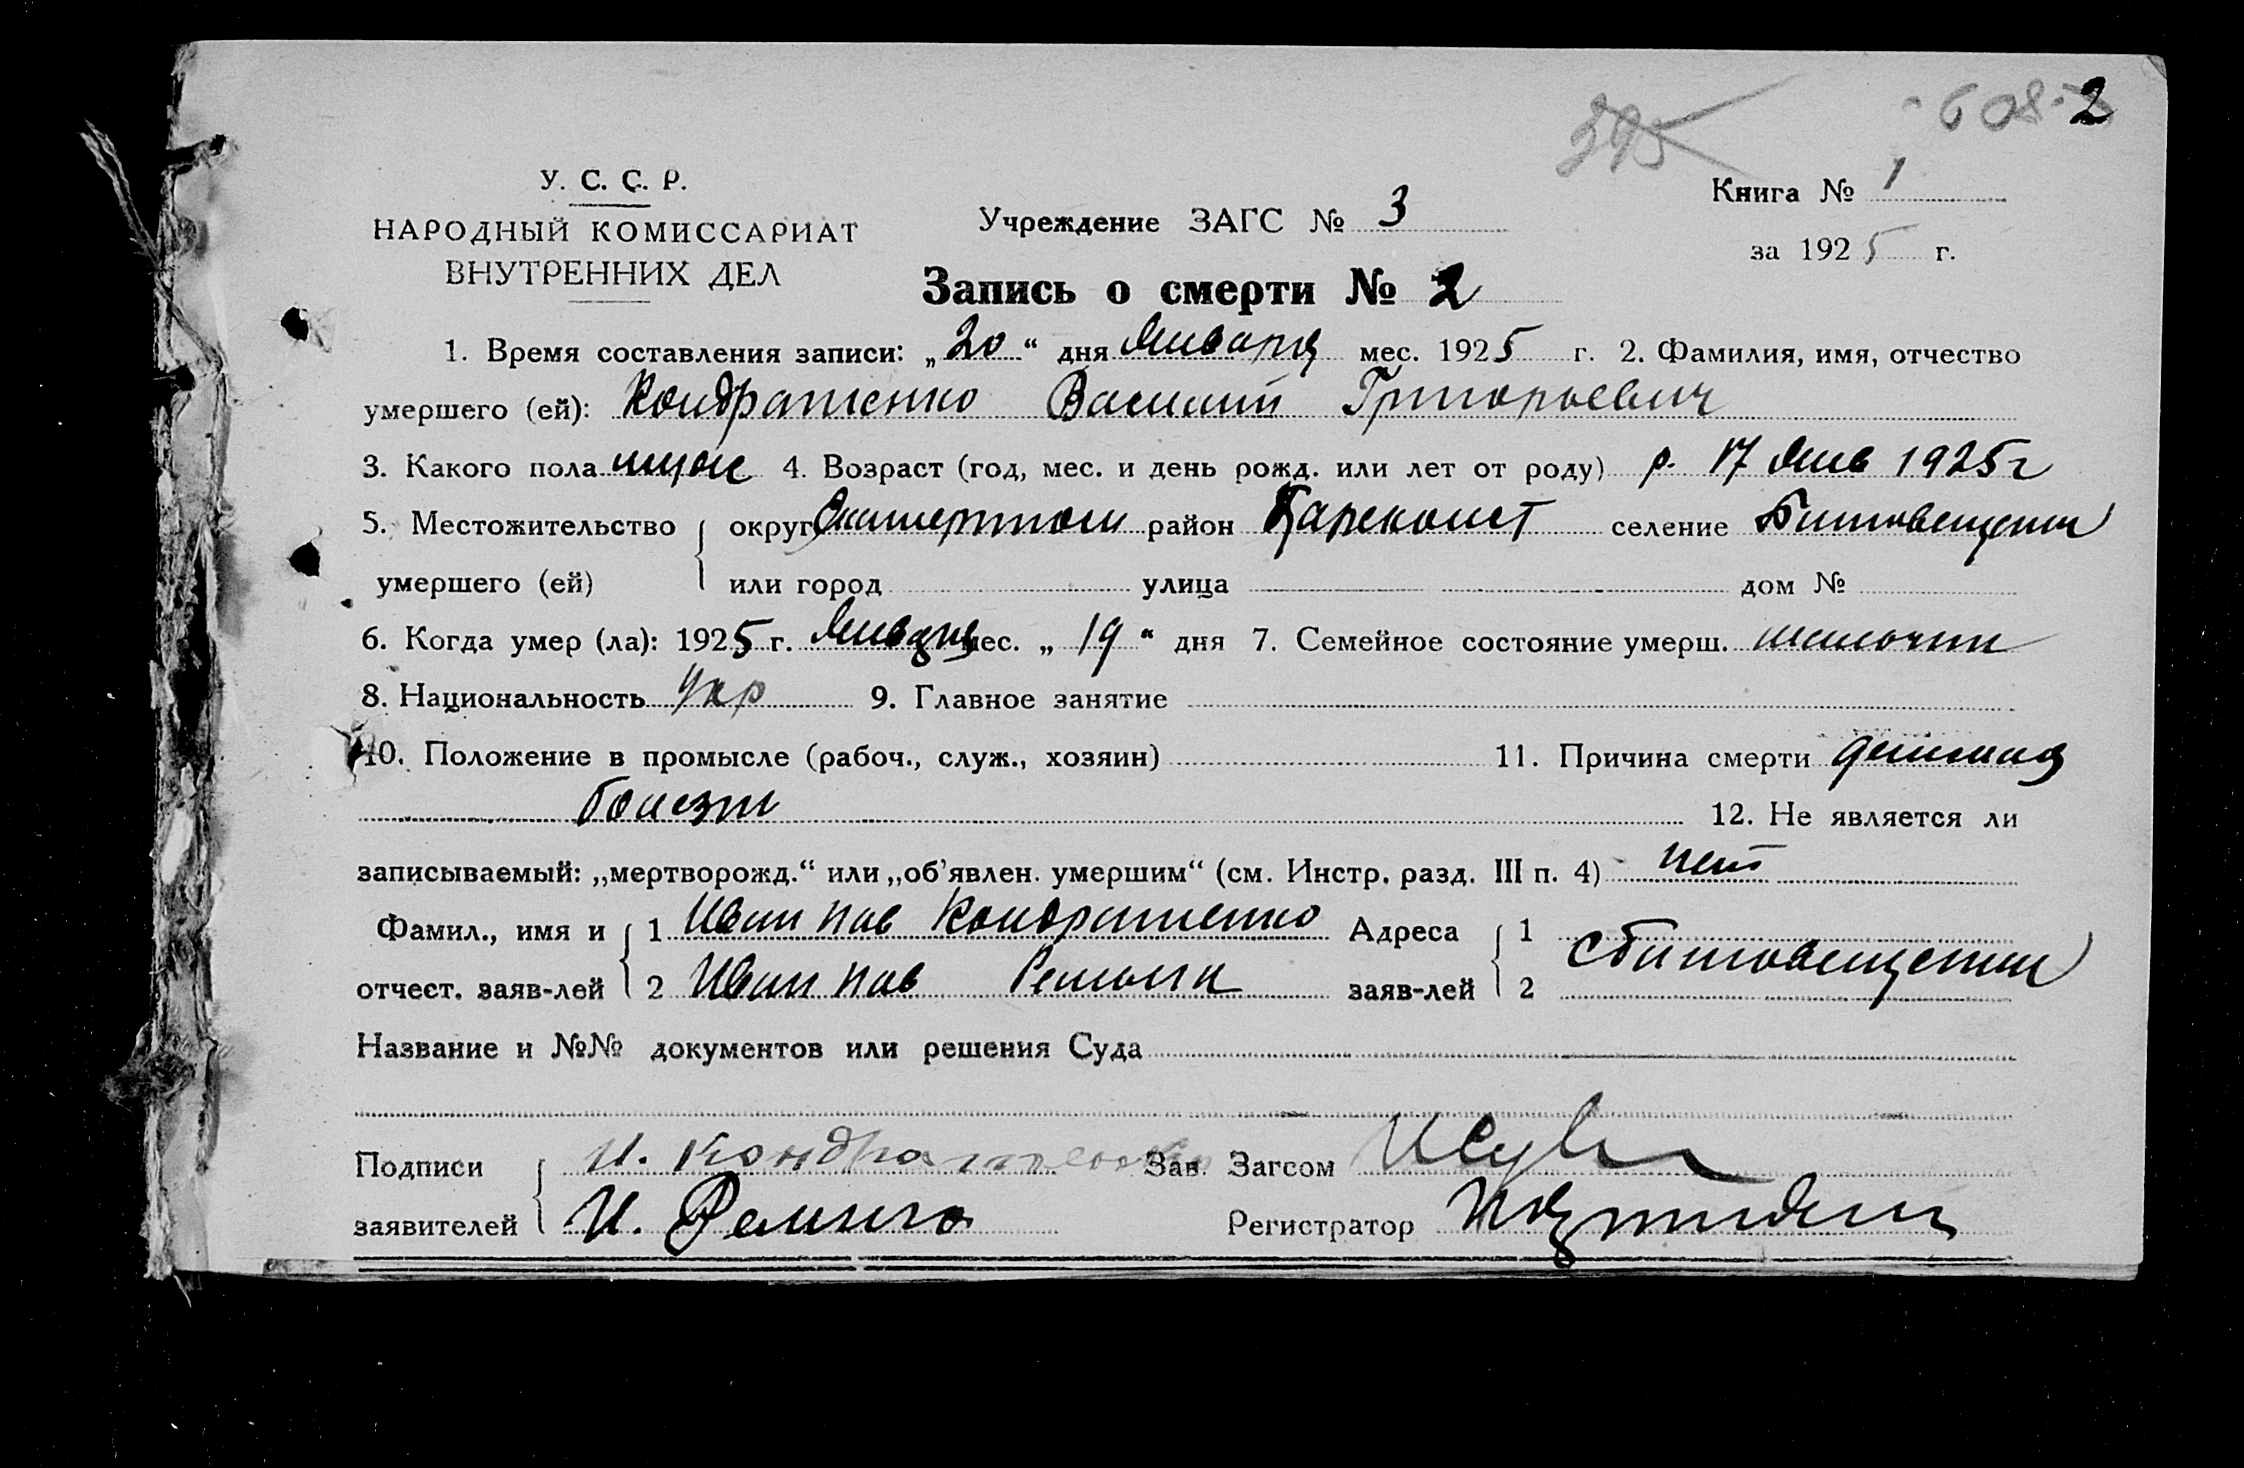 395 608 2
У. С. С. Р.
Книга № 1
НАРОДНЫЙ КОМИССАРИАТ
Учреждение ЗАГС № 3
за 1925 г.
ВНУТРЕННИХ ДЕЛ
Запись о смерти № 2
1. Время составления записи: „20“ дня Января мес. 1925 г. 2. Фамилия, имя, отчество
умершего (ей): Кондратенко Василий Григорьевич
3. Какого пола муж 4. Возраст (год, мес. и день рожд. или лет от роду) р. 17 Янв 1925 г
5. Местожительство округ район Цареконст селение
умершего (ей) или город улица дом №
6. Когда умер (ла): 1925 г. Января мес. „19“ дня 7. Семейное состояние умерш.
8. Национальность Укр 9. Главное занятие
10. Положение в промысле (рабоч., служ., хозяин) 11. Причина смерти
болезн
12. Не является ли
записываемый: „мертворожд.“ или „об'явлен. умершим“ (см. Инстр. разд. III п. 4) нет
Фамил., имя и 1 Иван Пав Кондратенко Адреса 1
отчест. заяв-лей 2 Иван Пав заяв-лей 2
Название и №№ документов или решения Суда
Подписи И. Кондратенко Зав. Загсом
заявителей И. Регистратор